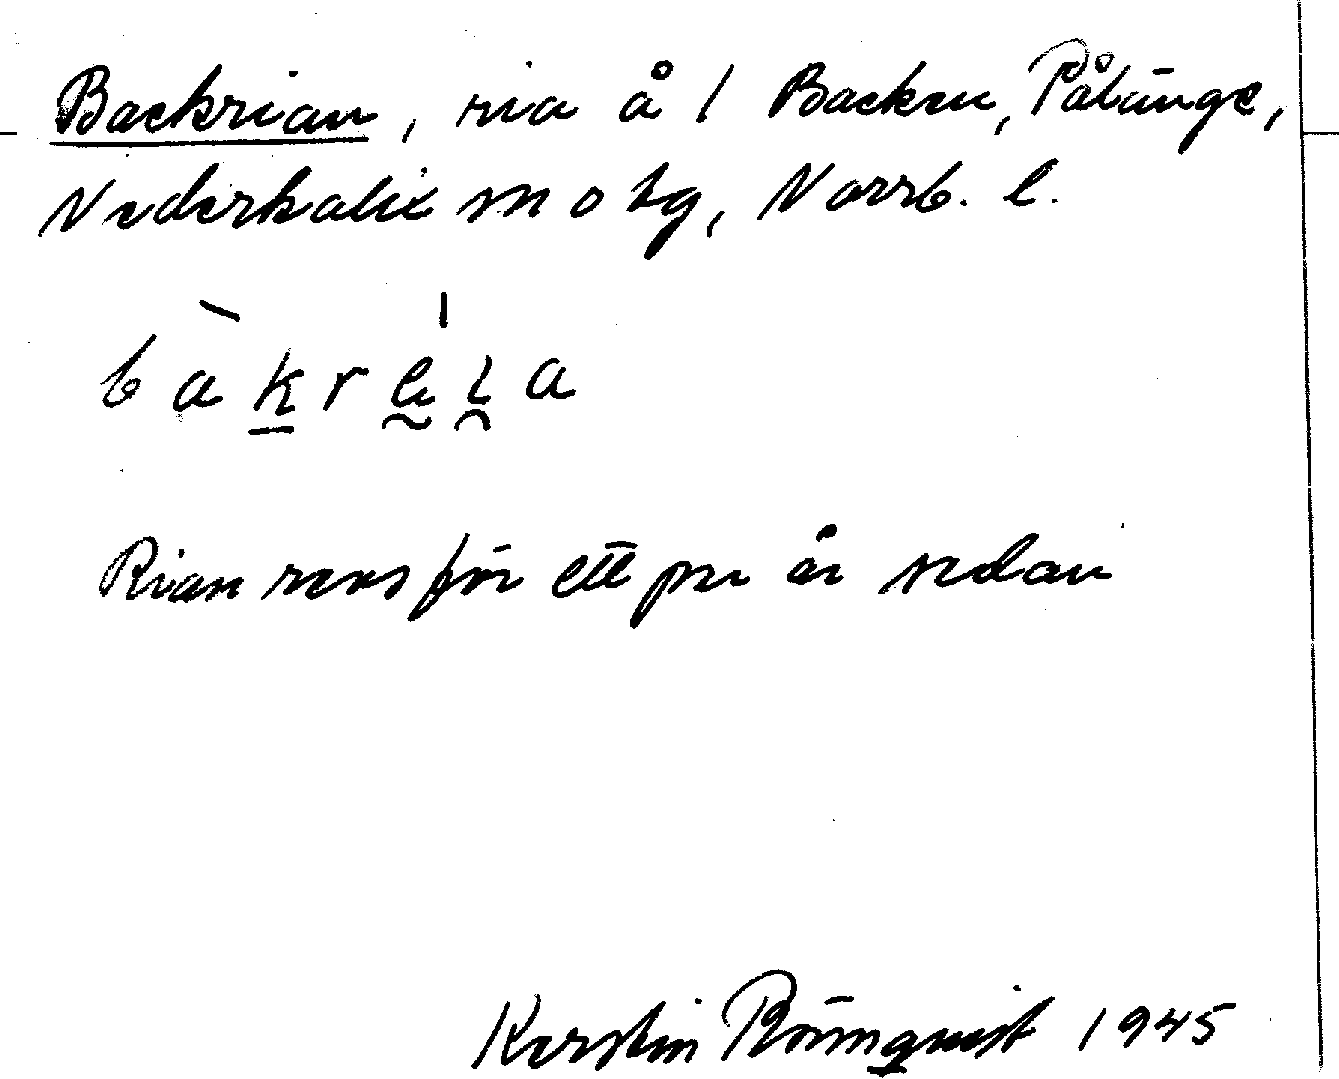 Backrian, ria å 1 Backen, Pålänge,
Nederkalix sn o tg, Norrb. l.
bàkre̯i̯a
Rian revs för ett par år sedan
Kerstin Römquist 1945